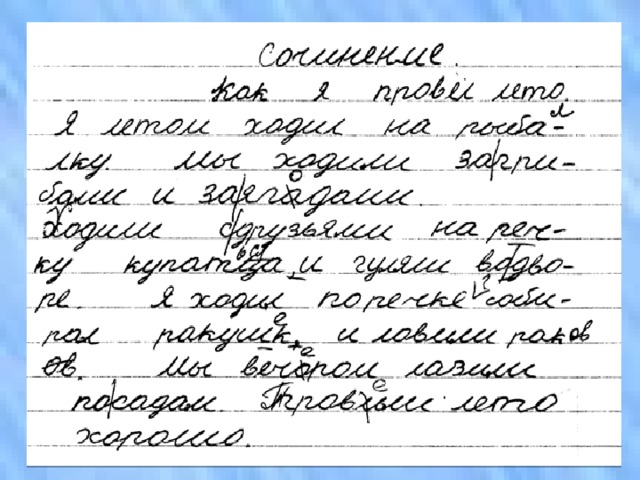 Сочинение.
Как я провёл лето.
Я летом ходил на рыба-
лку. Мы ходили загри-
бами и заягадами.
Ходили сдрузьями на реч-
ку купатца и гуляли водво-
ре. Я ходил поречке соби-
рал ракушк, и ловили раков
ов. Мы вечором лазили
посадам. Провили лето
хорошо.